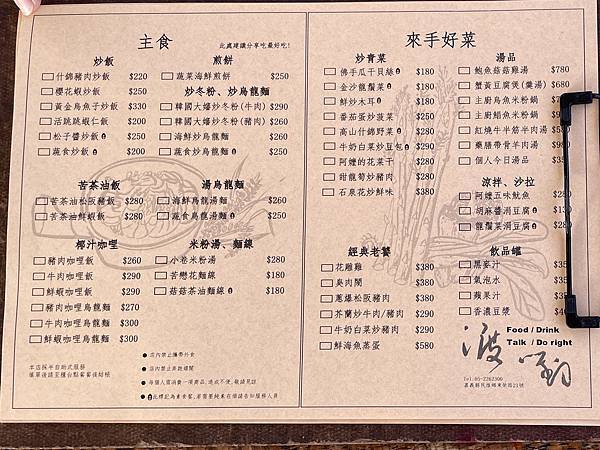 主食
此處建議分享吃最好吃!
炒飯
什錦豬肉炒飯 $220
櫻花蝦炒飯 $250
黃金烏魚子炒飯 $330
活跳跳蝦仁飯 $200
松子醬炒飯 $250
蔬食炒飯 $200
苦茶油飯
苦茶油松阪豬飯 $280
苦茶油鮮蝦飯 $280
椰汁咖哩
豬肉咖哩飯 $260
牛肉咖哩飯 $290
鮮蝦咖哩飯 $290
豬肉咖哩烏龍麵 $270
牛肉咖哩烏龍麵 $300
鮮蝦咖哩烏龍麵 $300
煎餅
蔬菜海鮮煎餅 $250
炒冬粉、炒烏龍麵
韓國大嬸炒冬粉(牛肉) $290
韓國大嬸炒冬粉(豬肉) $260
海鮮炒烏龍麵 $260
蔬食炒烏龍麵 $250
湯烏龍麵
海鮮烏龍湯麵 $260
蔬食烏龍湯麵 $250
米粉湯、麵線
小卷米粉湯 $280
苦戀花麵線 $180
菇菇茶油麵線 $180
本店採半自助式服務
填單後請至櫃台點餐套後結帳
店內禁止攜帶外食
店內禁止奔跑嬉鬧
每個人需消費一項商品,造成不便,敬請見諒
此標記為素食套,若需要純素在煩請告知服務人員
來手好菜
炒青菜
佛手瓜干貝絲 $180
金沙龍鬚菜 $180
鮮炒木耳 $180
番茄蛋炒菠菜 $250
高山什錦野菜 $280
牛奶白菜炒豆包 $390
阿嬤的花菜干 $280
甜龍筍炒豬肉 $280
石泉花炒鮮味 $380
經典老饕
花雕雞 $380
奐肉閣 $380
蔥爆松阪豬肉 $380
芥蘭炒牛肉/豬肉 $290
牛奶白菜炒豬肉 $290
鮮海魚蒸蛋 $580
湯品
鮑魚菇菇雞湯 $780
蟹黃豆腐煲(羹湯) $680
主廚烏魚米粉鍋
主廚鯧魚米粉鍋
紅燒牛半筋半肉湯
藥膳帶骨羊肉湯
個人今日湯品
涼拌、沙拉
阿嬤五味魷魚
胡麻醬涓豆腐
龍鬚菜涓豆腐
飲品罐
黑麥汁
氣泡水
蘋果汁
香濃豆漿
Food / Drink
Talk / Do right
Tel:05-2262300
嘉義縣民雄鄉東榮路21號